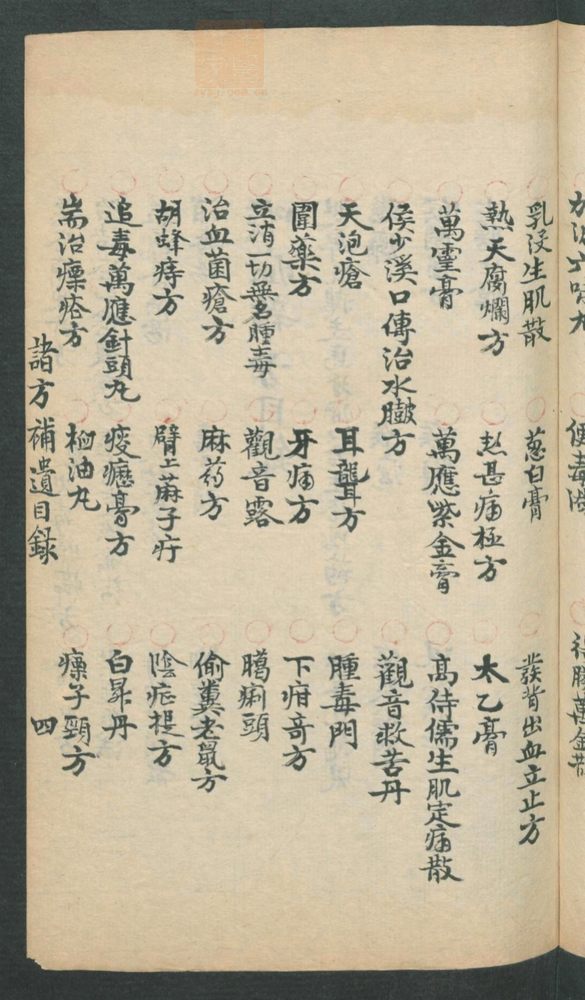 乳沒生肌散　葱白膏　發背出血立止方
熱天腐爛方　熱甚痛極方　太乙膏
萬靈膏　萬應紫金膏　高侍儒生肌定痛散
侯少溪口傳治水臌方　觀音救苦丹
天泡瘡　耳聾方　腫毒門
圍藥方　牙痛方　下疳奇方
立消一切無名腫毒　觀音露　腸痢頭
治血菌瘡方　麻药方　偷糞老鼠方
胡蜂痔方　臂上麻子疔　陰疟提方
追毒萬應針頭丸　痰癧膏方　白昇丹
耑治瘰疬方　桕油丸　瘰子頸方
諸方補遺目錄　四